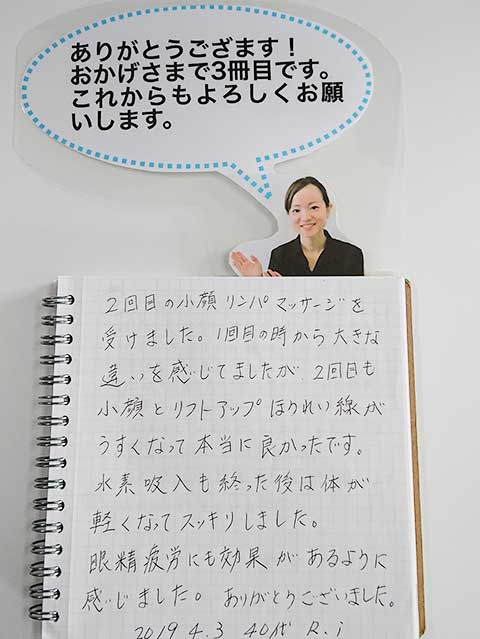 ありがとうござます！
おかげさまで3冊目です。
これからもよろしくお願
いします。
2回目の小顔リンパマッサージを
受けました。1回目の時から大きな
違いを感じてましたが、2回目も
小顔とリフトアップほうれい線が
うすくなって本当に良かったです。
水素吸入も終った後は体が
軽くなってスッキリしました。
眼精疲労にも効果があるように
感じました。ありがとうございました。
2019.4.3 40代 R.i